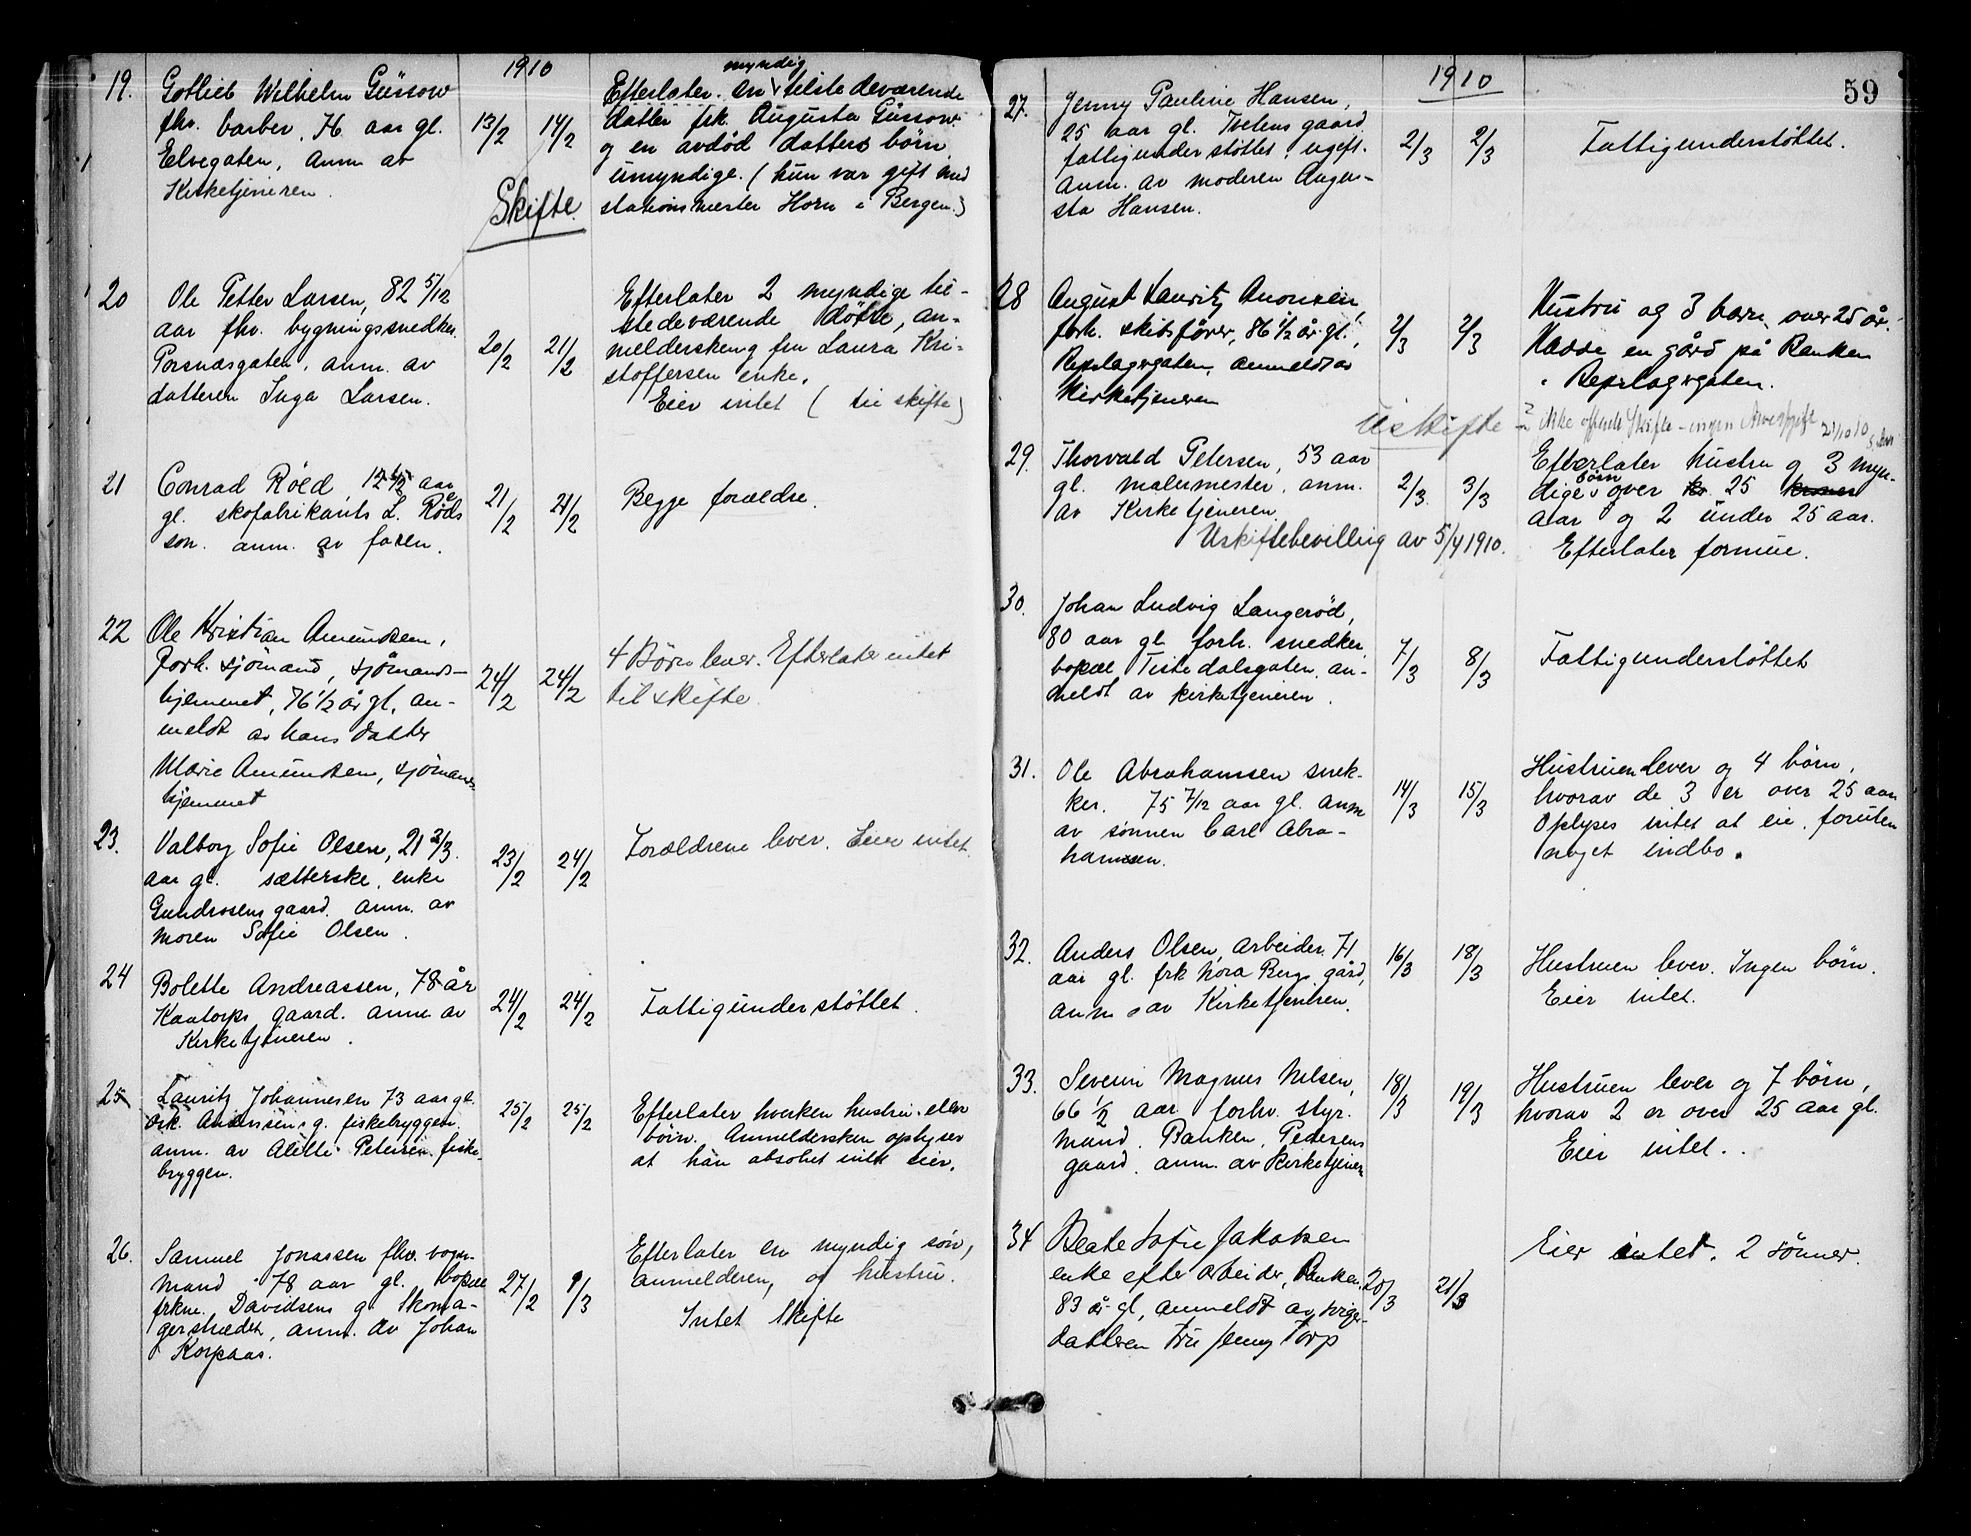 1910
19. Gotlieb Wilhelm Güssow
fhv. barber, 76 aar gl.
Elvegaten, anm av
Kirketjeneren.
13/2 14/2
Skifte.
myndig
Efterlater en tilstedeværende
datter frk. Augusta Güssow
og en avdød datters børn
umyndige. (hun var gift med
stationsmester Horn i Bergen.)
20 Ole Petter Larsen, 82 5/12
aar fhv. bygningssnedker
Porsnæsgaten, anm. av
datteren Inga Larsen.
20/2 21/2
Efterlater 2 myndige til-
stedeværende døtre, an-
meldersken og fru Laura Kri-
stoffersen enke.
Eier intet (til skifte)
21 Conrad Röed 12 aar
gl. skofabrikants L. Røds
søn. anm. av faren.
21/2 21/2
Begge forældre.
22 Ole Kristian Amundsen,
forh. sjömand, sjömands-
hjemmet, 76 1/2 år gl, an-
meldt av hans datter
Marie Amundsen, sjömands
hjemmet
24/2 24/2
4 Börn lever. Efterlater intet
til skifte.
23. Valborg Sofie Olsen, 21 2/3
aar gl. sætterske, enke
Gundersens gaard. anm. av
moren Sofie Olsen.
23/2 24/2
Forældrene lever. Eier intet.
24 Bolette Andreassen, 78 år
Kaatorps gaard. anm av
Kirketjeneren.
24/2 24/2
Fattigunderstøttet.
25 Lauritz Johannesen 73 aar gl.
Andersens g. fiskebryggen.
anm. av Alette Petersen fiske-
bryggen.
25/2 25/2
Efterlater hverken hustru eller
børn. Anmeldersken oplyser
at han absolut intet eier.
26. Samuel Jonassen fhv. vogn-
mand 78 aar gl. bopæl
frkne. Davidsens g. Skoma-
gerstrædet, anm. av Johan
Korpaas.
27/2 1/3
Efterlater en myndig søn,
anmelderen, og hustru.
Intet Skifte
59
1910
27. Jenny Pauline Hansen,
25 aar gl. Tvetens gaard
fattigunderstøttet, ugift.
anm. av moderen Augu-
sta Hansen.
2/3 2/3
Fattigunderstøttet.
28 August Lauritz Anonsen,
forh. skibsfører, 86 1/2 år gl.,
Repslagergaten, anmeldt av
Kirketjeneren
2/3 2/3
Uskifte
Hustru og 3 barn, over 25 år.
Hadde en gård på Banken
i Repslagergaten.
ikke offentl Skifte - ingen
29. Thorvald Petersen, 53 aar
gl. malermester, anm.
av Kirketjeneren
2/3 3/3
Uskiftebevilling av 5/4 1910.
Efterlater hustru og 3 myn-
dige børn over kr. 25 kroner
aar og 2 under 25 aar.
Efterlater formue.
30. Johan Ludvig Langerød,
80 aar gl. forh. snedker
bopæl Tistedalsgaten. an-
meldt av kirketjeneren.
7/3 8/3
Fattigunderstøttet
31. Ole Abrahamsen snek-
ker. 75 7/12 aar gl. anm
av sønnen Carl Abra-
hamsen.
14/3 15/3
Hustruen lever og 4 børn,
hvorav de 3 er over 25 aar
Oplyses intet at eie, foruten
noget indbo.
32. Anders Olsen, arbeider 71
aar gl. frk Nora Bergs gård,
anm. av Kirketjeneren.
16/3 18/3
Hustruen lever. Ingen børn.
Eier intet.
33. Severin Magnus Nilsen,
66 1/2 aar. forhv. styr.
mand. Banken, Pedersens
gaard. anm. av Kirketjener
18/3 19/3
Hustruen lever og 7 børn,
hvorav 2 er over 25 aar gl.
Eier intet.
34 Beate Sofie Jakobsen
enke efter arbeider, Banken.
83 år gl, anmeldt av sviger-
datteren Fru Jenny Torp
20/3 21/3
Eier intet. 2 sönner.